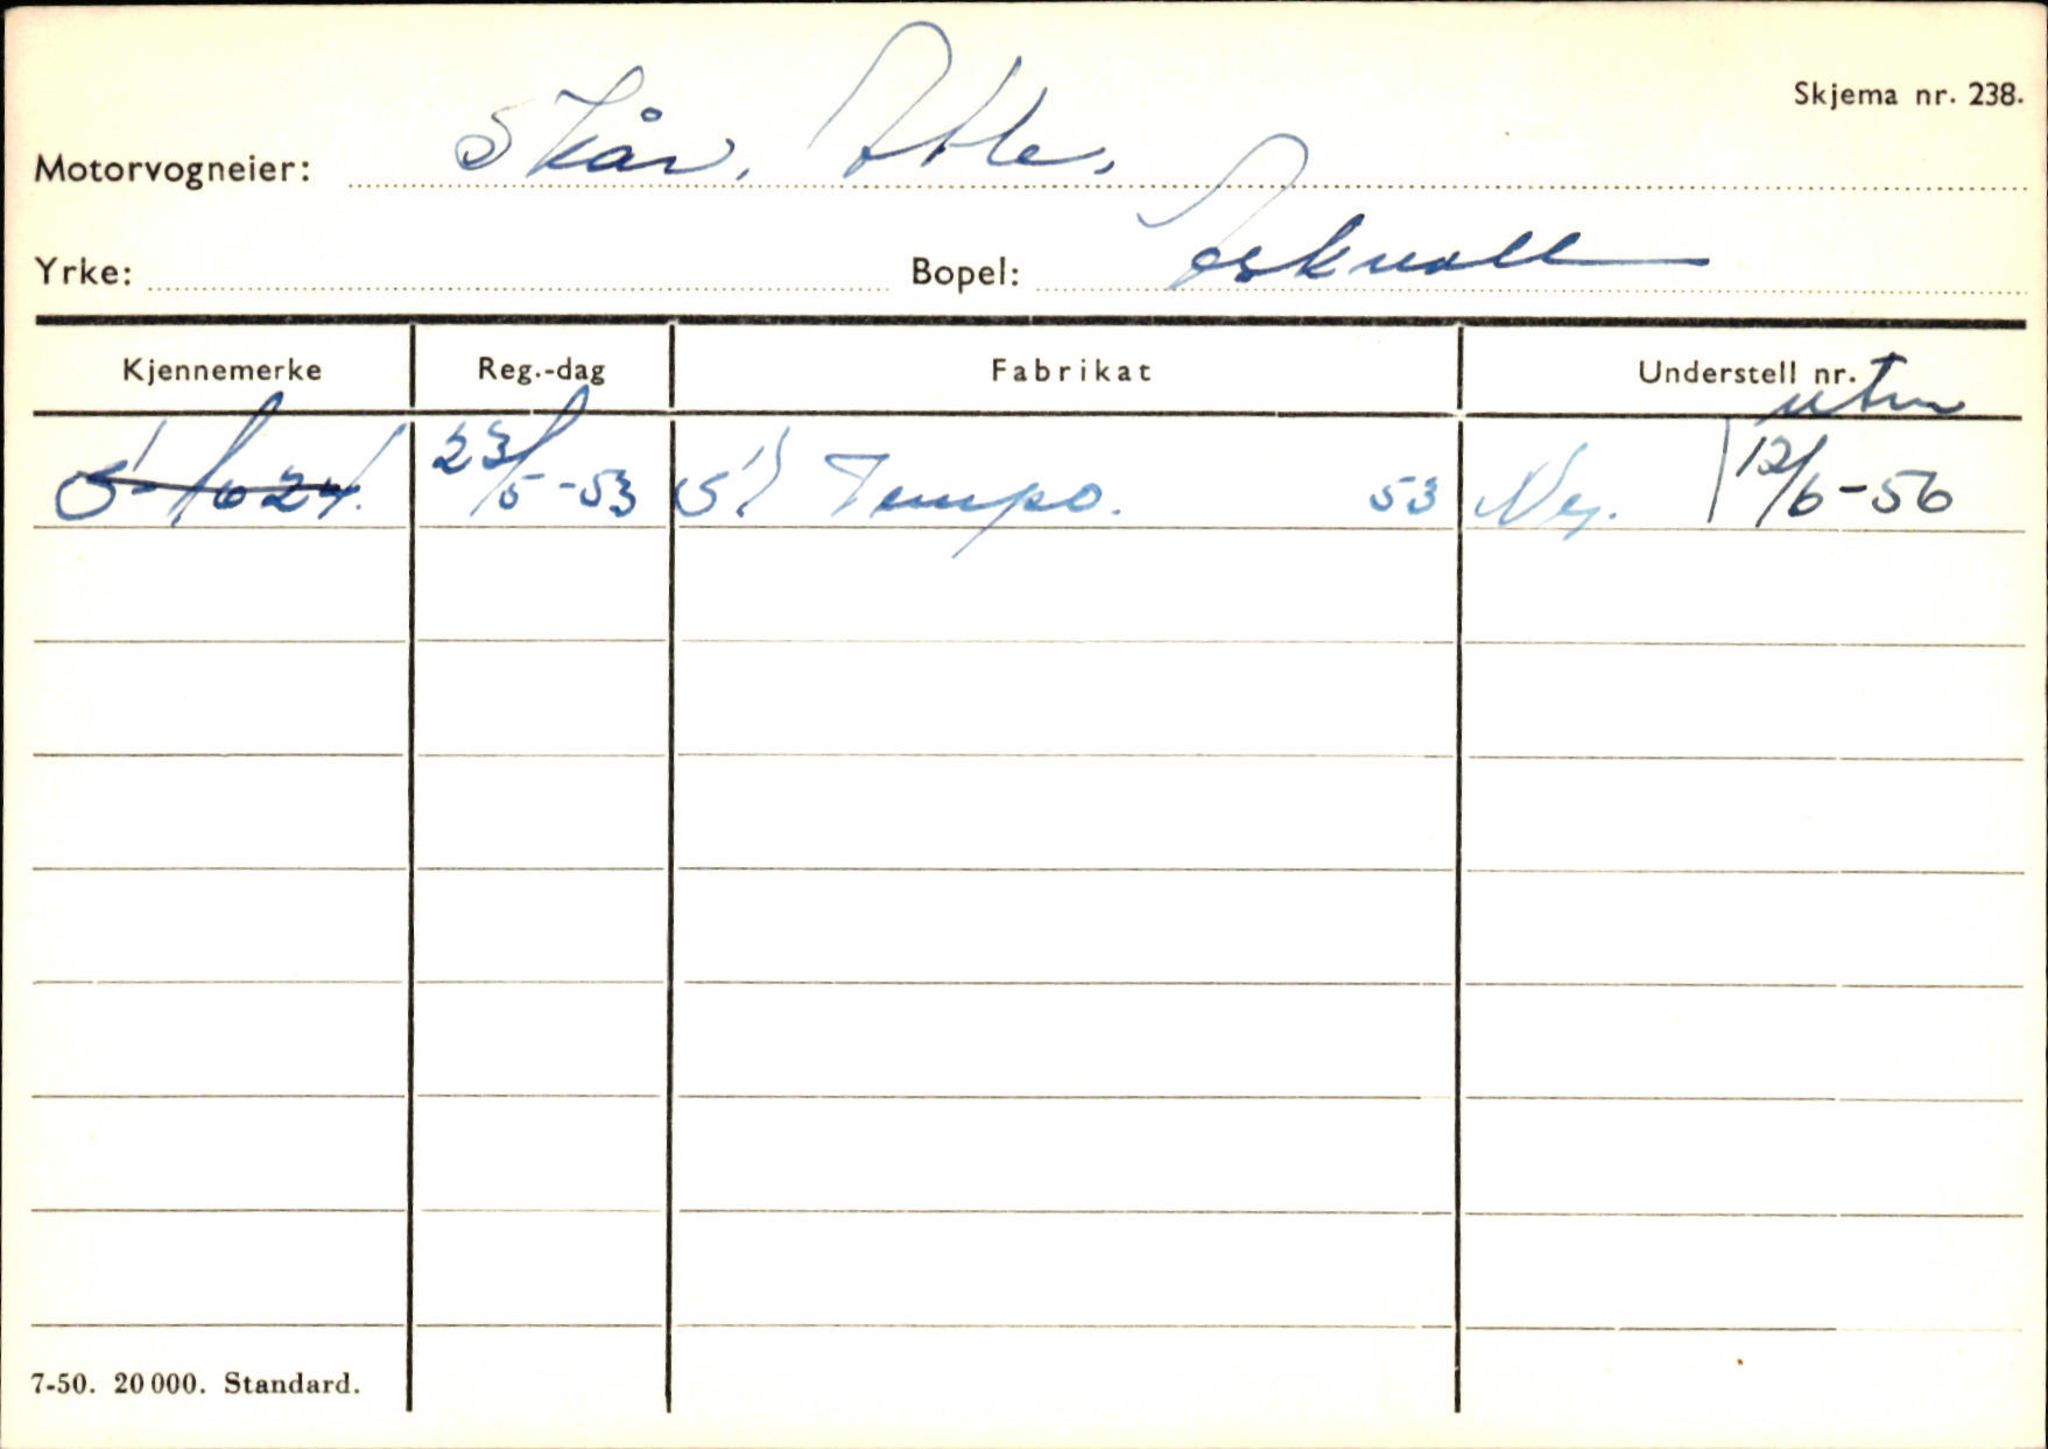 Skjema nr. 238.
Motorvogneier: Skår, Atle,
Yrke: Bopel: Askvoll
Kjennemerke Reg.-dag Fabrikat Understell nr.
23/5-53 Tempo. 53 Ny. 12/6-56
7-50. 20 000. Standard.